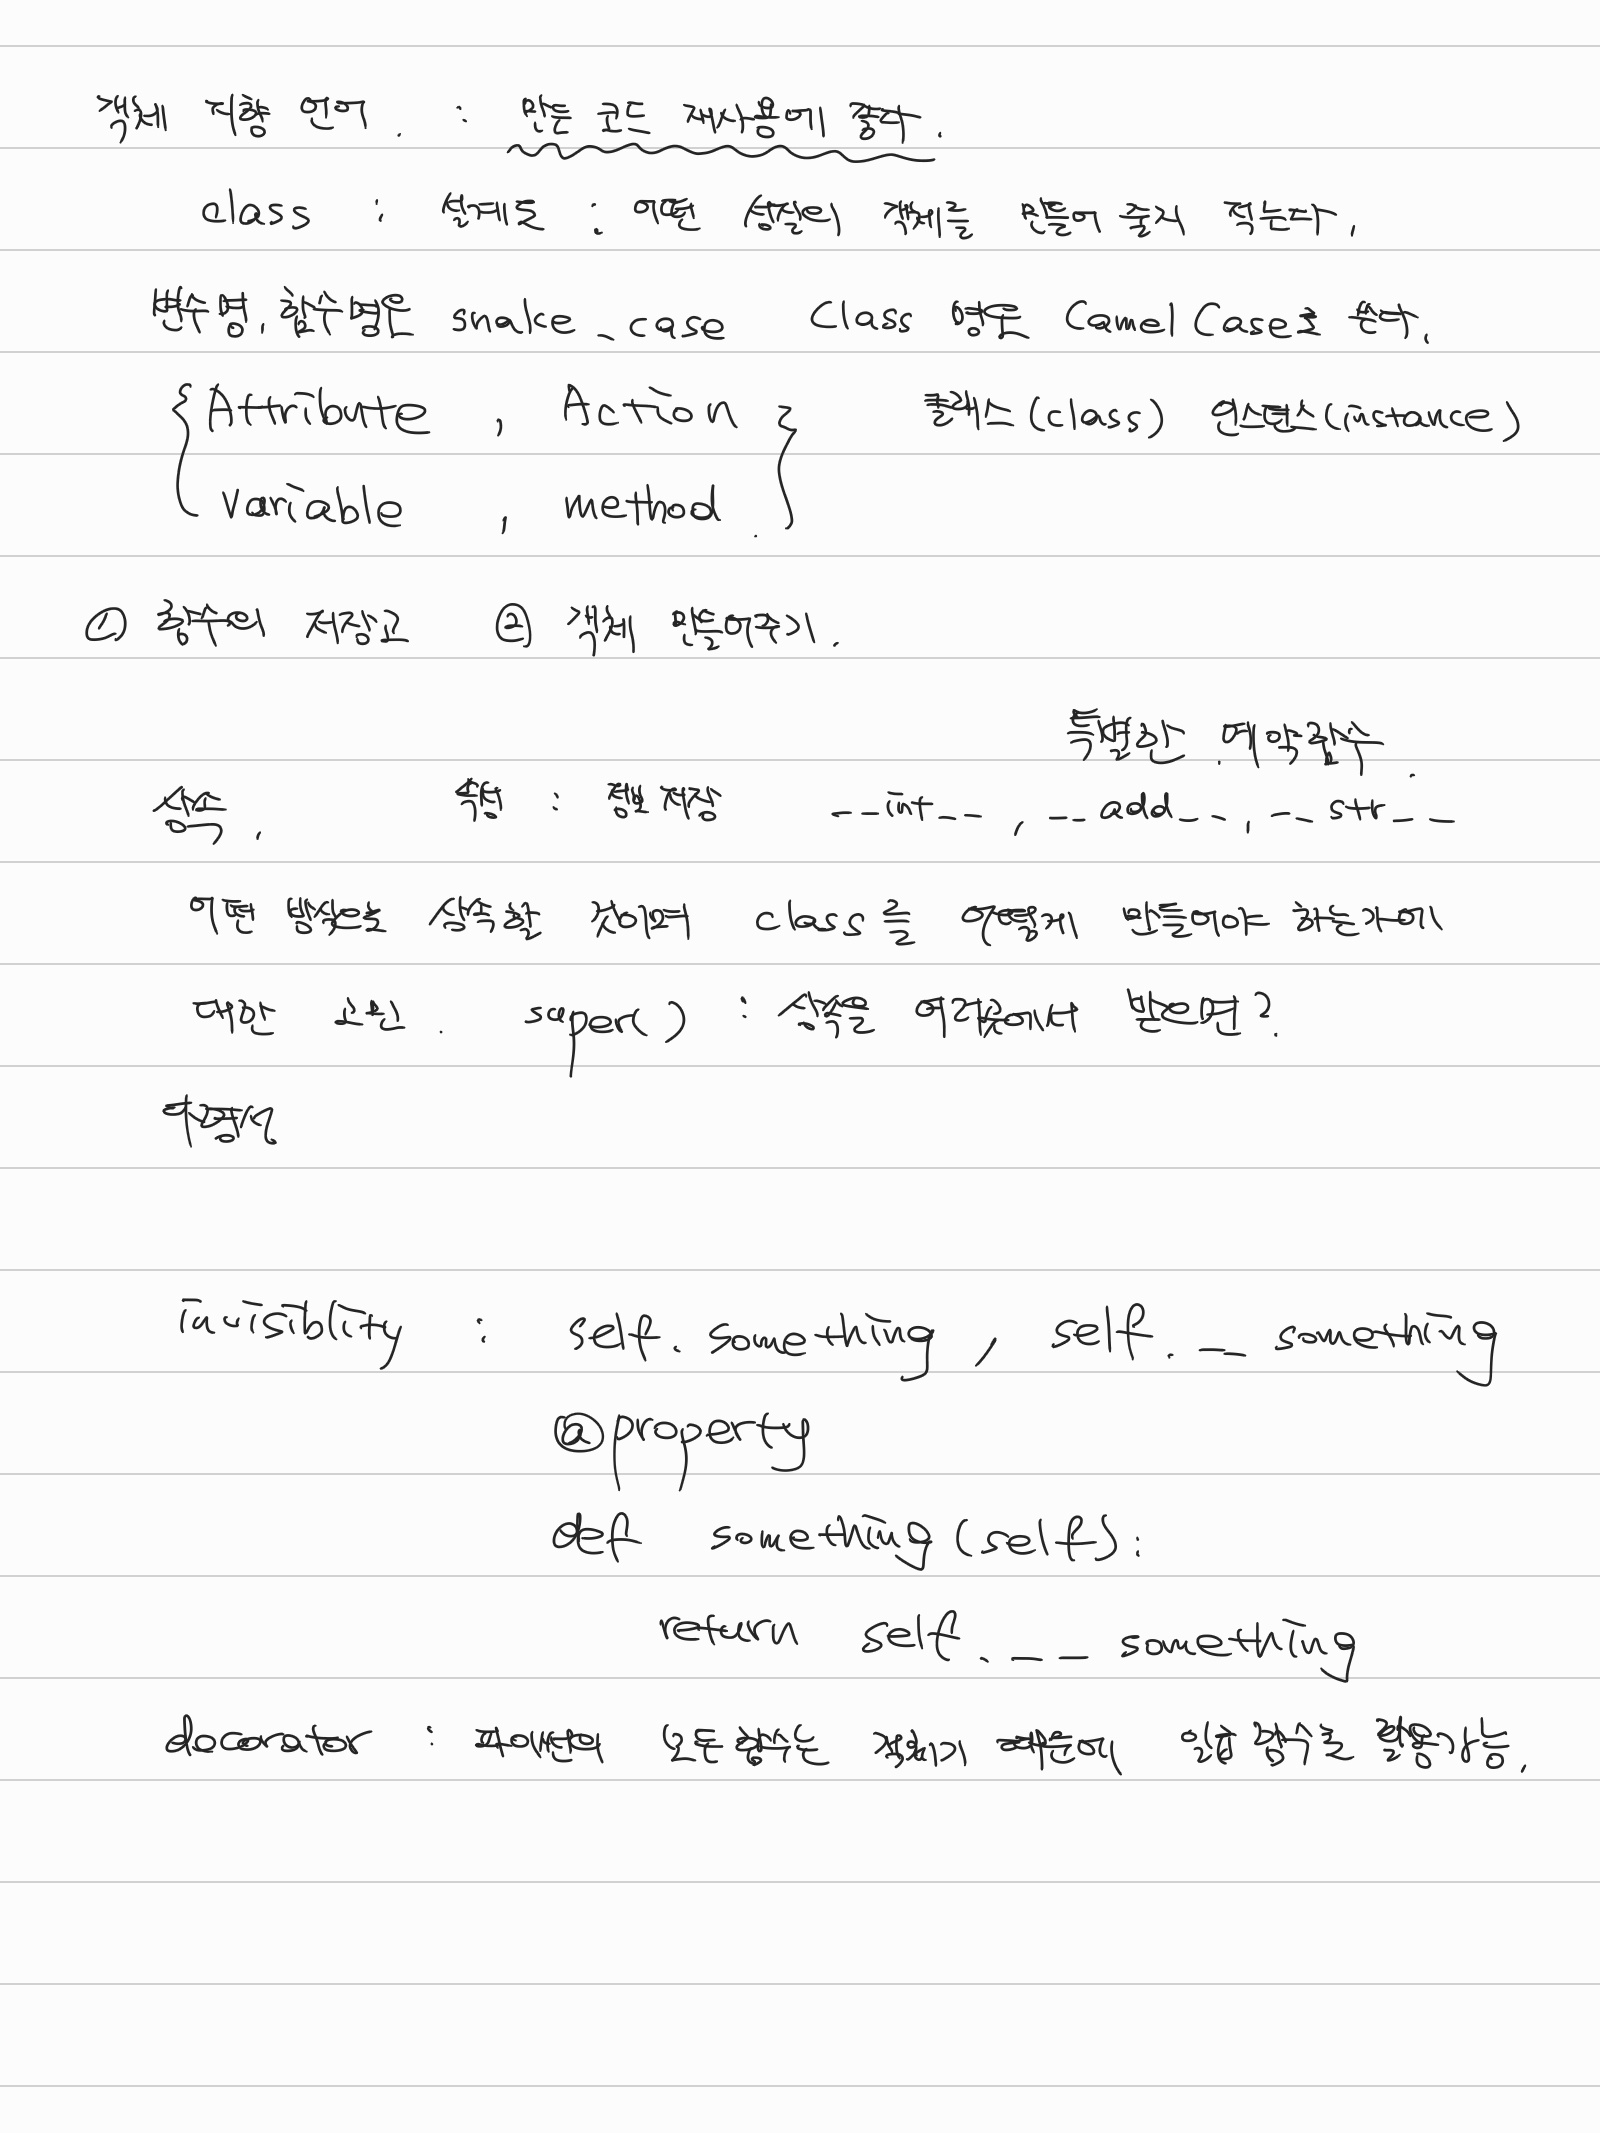 객체 지향 언어. : 만든 코드 재사용에 좋다.
class : 설계도 : 어떤 성질의 객체를 만들어 줄지 적는다.
변수명, 함수명은 snake_case Class 명은 CamelCase로 쓴다.
{ Attribute , Action } 클래스(class) 인스턴스(instance)
variable , method.
① 함수의 저장고 ② 객체 만들어주기.
특별한 예약함수.
상속. 속성 : 정보 저장 __int__, __add__, __str__
어떤 방식으로 상속할 것이며 class를 어떻게 만들어야 하는가에
대한 고민. super() : 상속을 여러곳에서 받으면?
invisiblity : self.something, self.__something
@property
def something(self):
return self.__something
decorator : 파이썬의 모든 함수는 객체이기 때문에 일급함수로 활용가능.